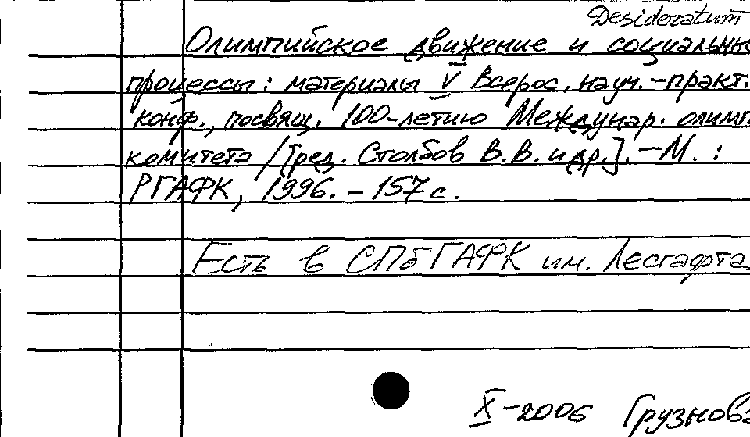 Desideratum
Олимпийское движение и социальны
процессы: материалы V Всерос. науч.-практ.
конф., посвящ. 100-летию Междунар. олимп.
комитета / [ред. Столбов В.В. и др.]. - М. :
РГАФК, 1996. - 157 с.
Есть в СПбГАФК им. Лесгафта
X-2006 Грузнова